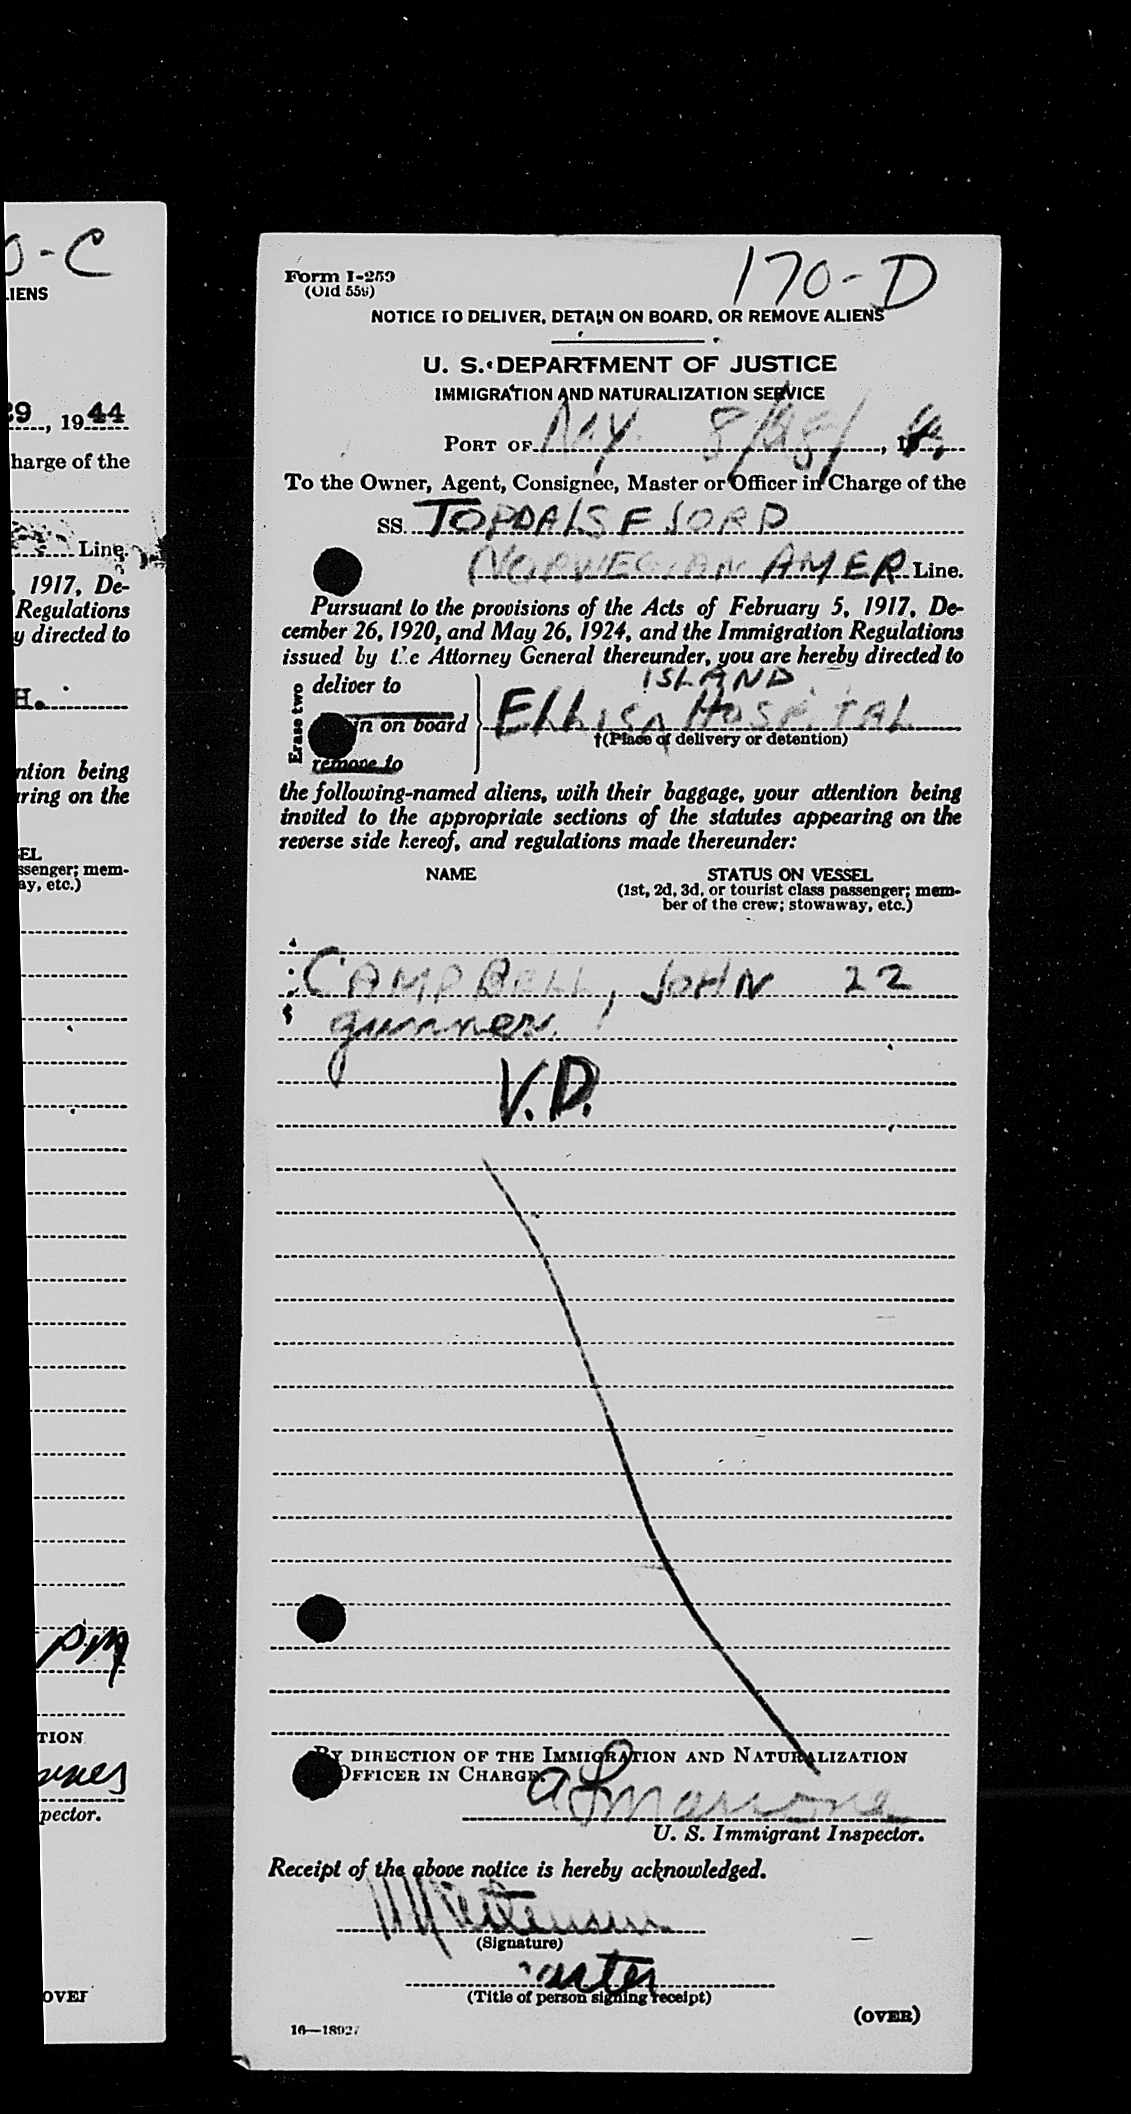 0-C
IENS
29, 1944
harge of the
Line.
1917, De-
Regulations
y directed to
H.
ntion being
ring on the
EL
ssenger; mem-
ay, etc.)
PM
TION
pector.
OVER
170-D
Form I-259
(Old 559)
NOTICE TO DELIVER, DETAIN ON BOARD, OR REMOVE ALIENS
U. S. DEPARTMENT OF JUSTICE
IMMIGRATION AND NATURALIZATION SERVICE
PORT OF N.Y. 8/28/
To the Owner, Agent, Consignee, Master or Officer in Charge of the
SS. TOPDALSFJORD
NORWEGIAN AMER Line.
Pursuant to the provisions of the Acts of February 5, 1917, De-
cember 26, 1920, and May 26, 1924, and the Immigration Regulations
issued by the Attorney General thereunder, you are hereby directed to
Erase two
deliver to
in on board
remove to
ISLAND
ELLIS HOSPITAL
†(Place of delivery or detention)
the following-named aliens, with their baggage, your attention being
invited to the appropriate sections of the statutes appearing on the
reverse side hereof, and regulations made thereunder:
NAME STATUS ON VESSEL
(1st, 2d, 3d, or tourist class passenger; mem-
ber of the crew; stowaway, etc.)
CAMPBELL, JOHN 22
gunner.
V.D.
BY DIRECTION OF THE IMMIGRATION AND NATURALIZATION
OFFICER IN CHARGE.
U. S. Immigrant Inspector.
Receipt of the above notice is hereby acknowledged.
(Signature)
aster
(Title of person signing receipt)
(OVER)
16—18927